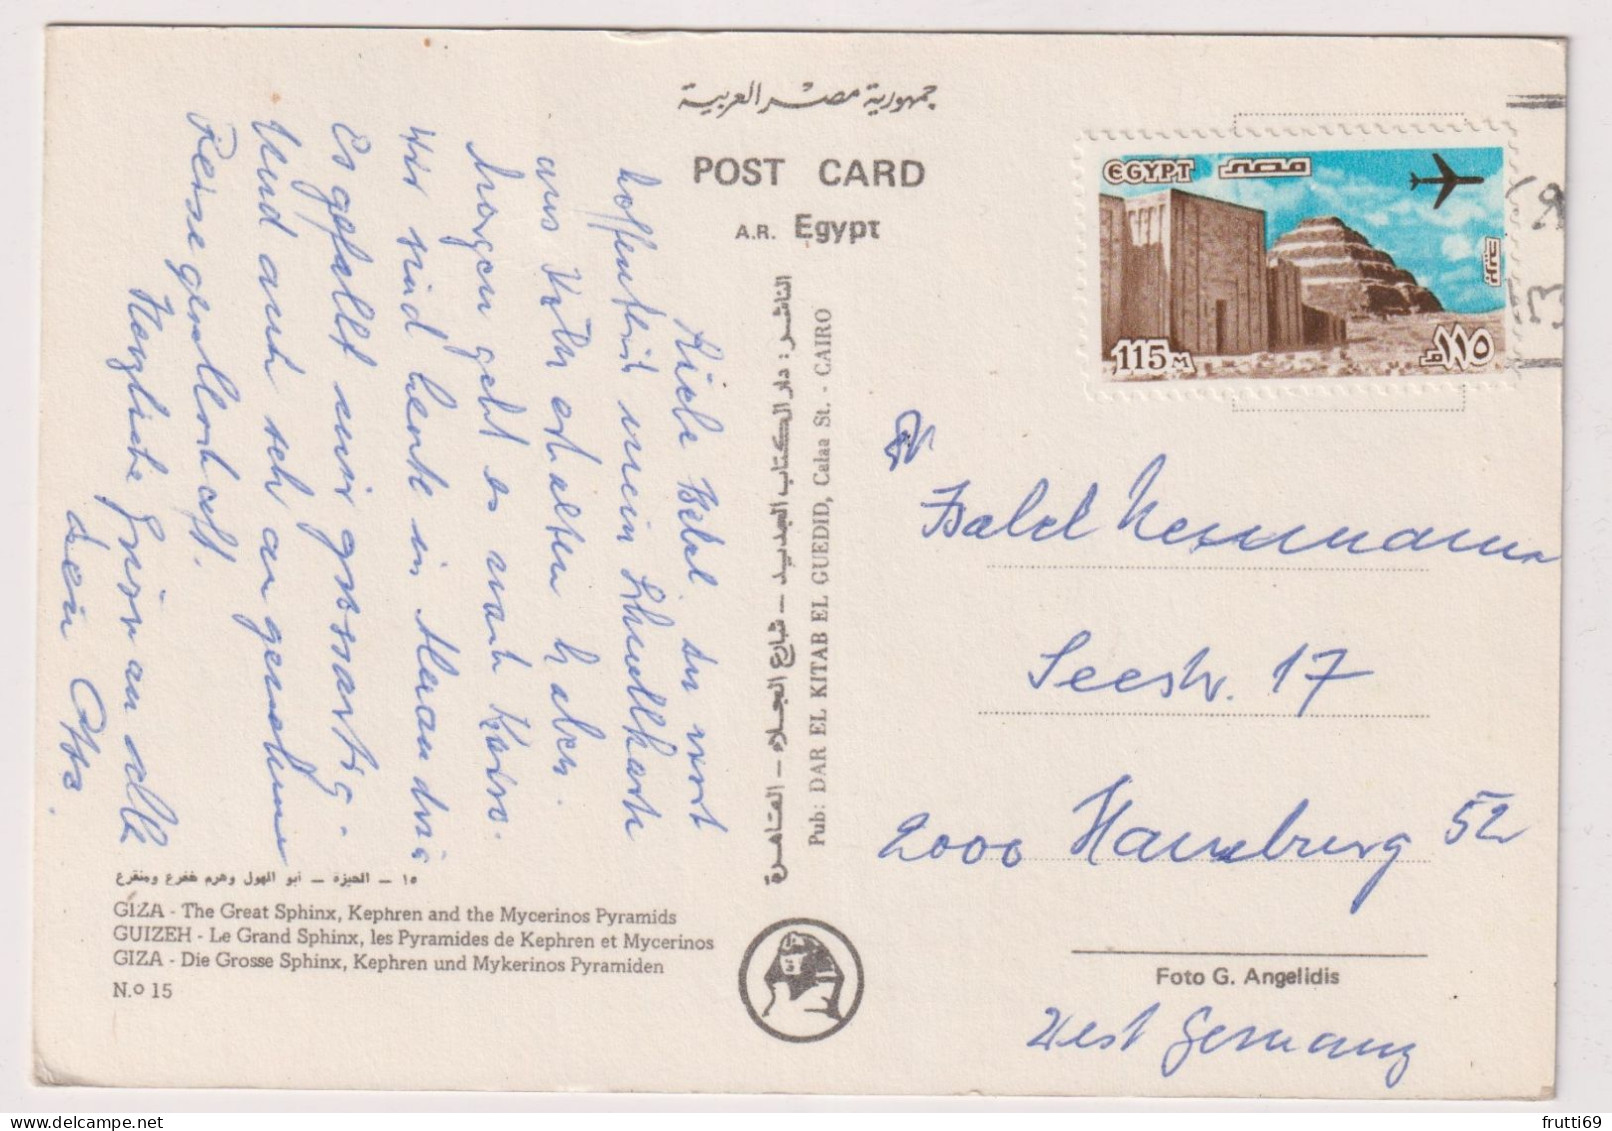 جمهورية مصر العربية
POST CARD
A.R. Egypt
EGYPT مصر
بريد
115 M ١١٥ م
Liebe Isabel du wirst
hoffentlich mein
aus Köln erhalten haben.
Morgen geht es nach Kairo.
Wir sind heute in
Es gefällt mir grossartig.
Und auch sch angenehme
Reisegesellschaft.
Herzliche Grüsse an alle
dein Otto.
الناشر : دار الكتاب الجديد – شارع الجلاء – القاهرة
Pub: DAR EL KITAB EL GUEDID, Calaa St. - CAIRO
An
Isabel
Seestr. 17
2000 Hamburg 52
West Germany
١٥ – الجيزة – أبو الهول وهرم خفرع ومنقرع
GIZA - The Great Sphinx, Kephren and the Mycerinos Pyramids
GUIZEH - Le Grand Sphinx, les Pyramides de Kephren et Mycerinos
GIZA - Die Grosse Sphinx, Kephren und Mykerinos Pyramiden
N.º 15
Foto G. Angelidis
frutti69